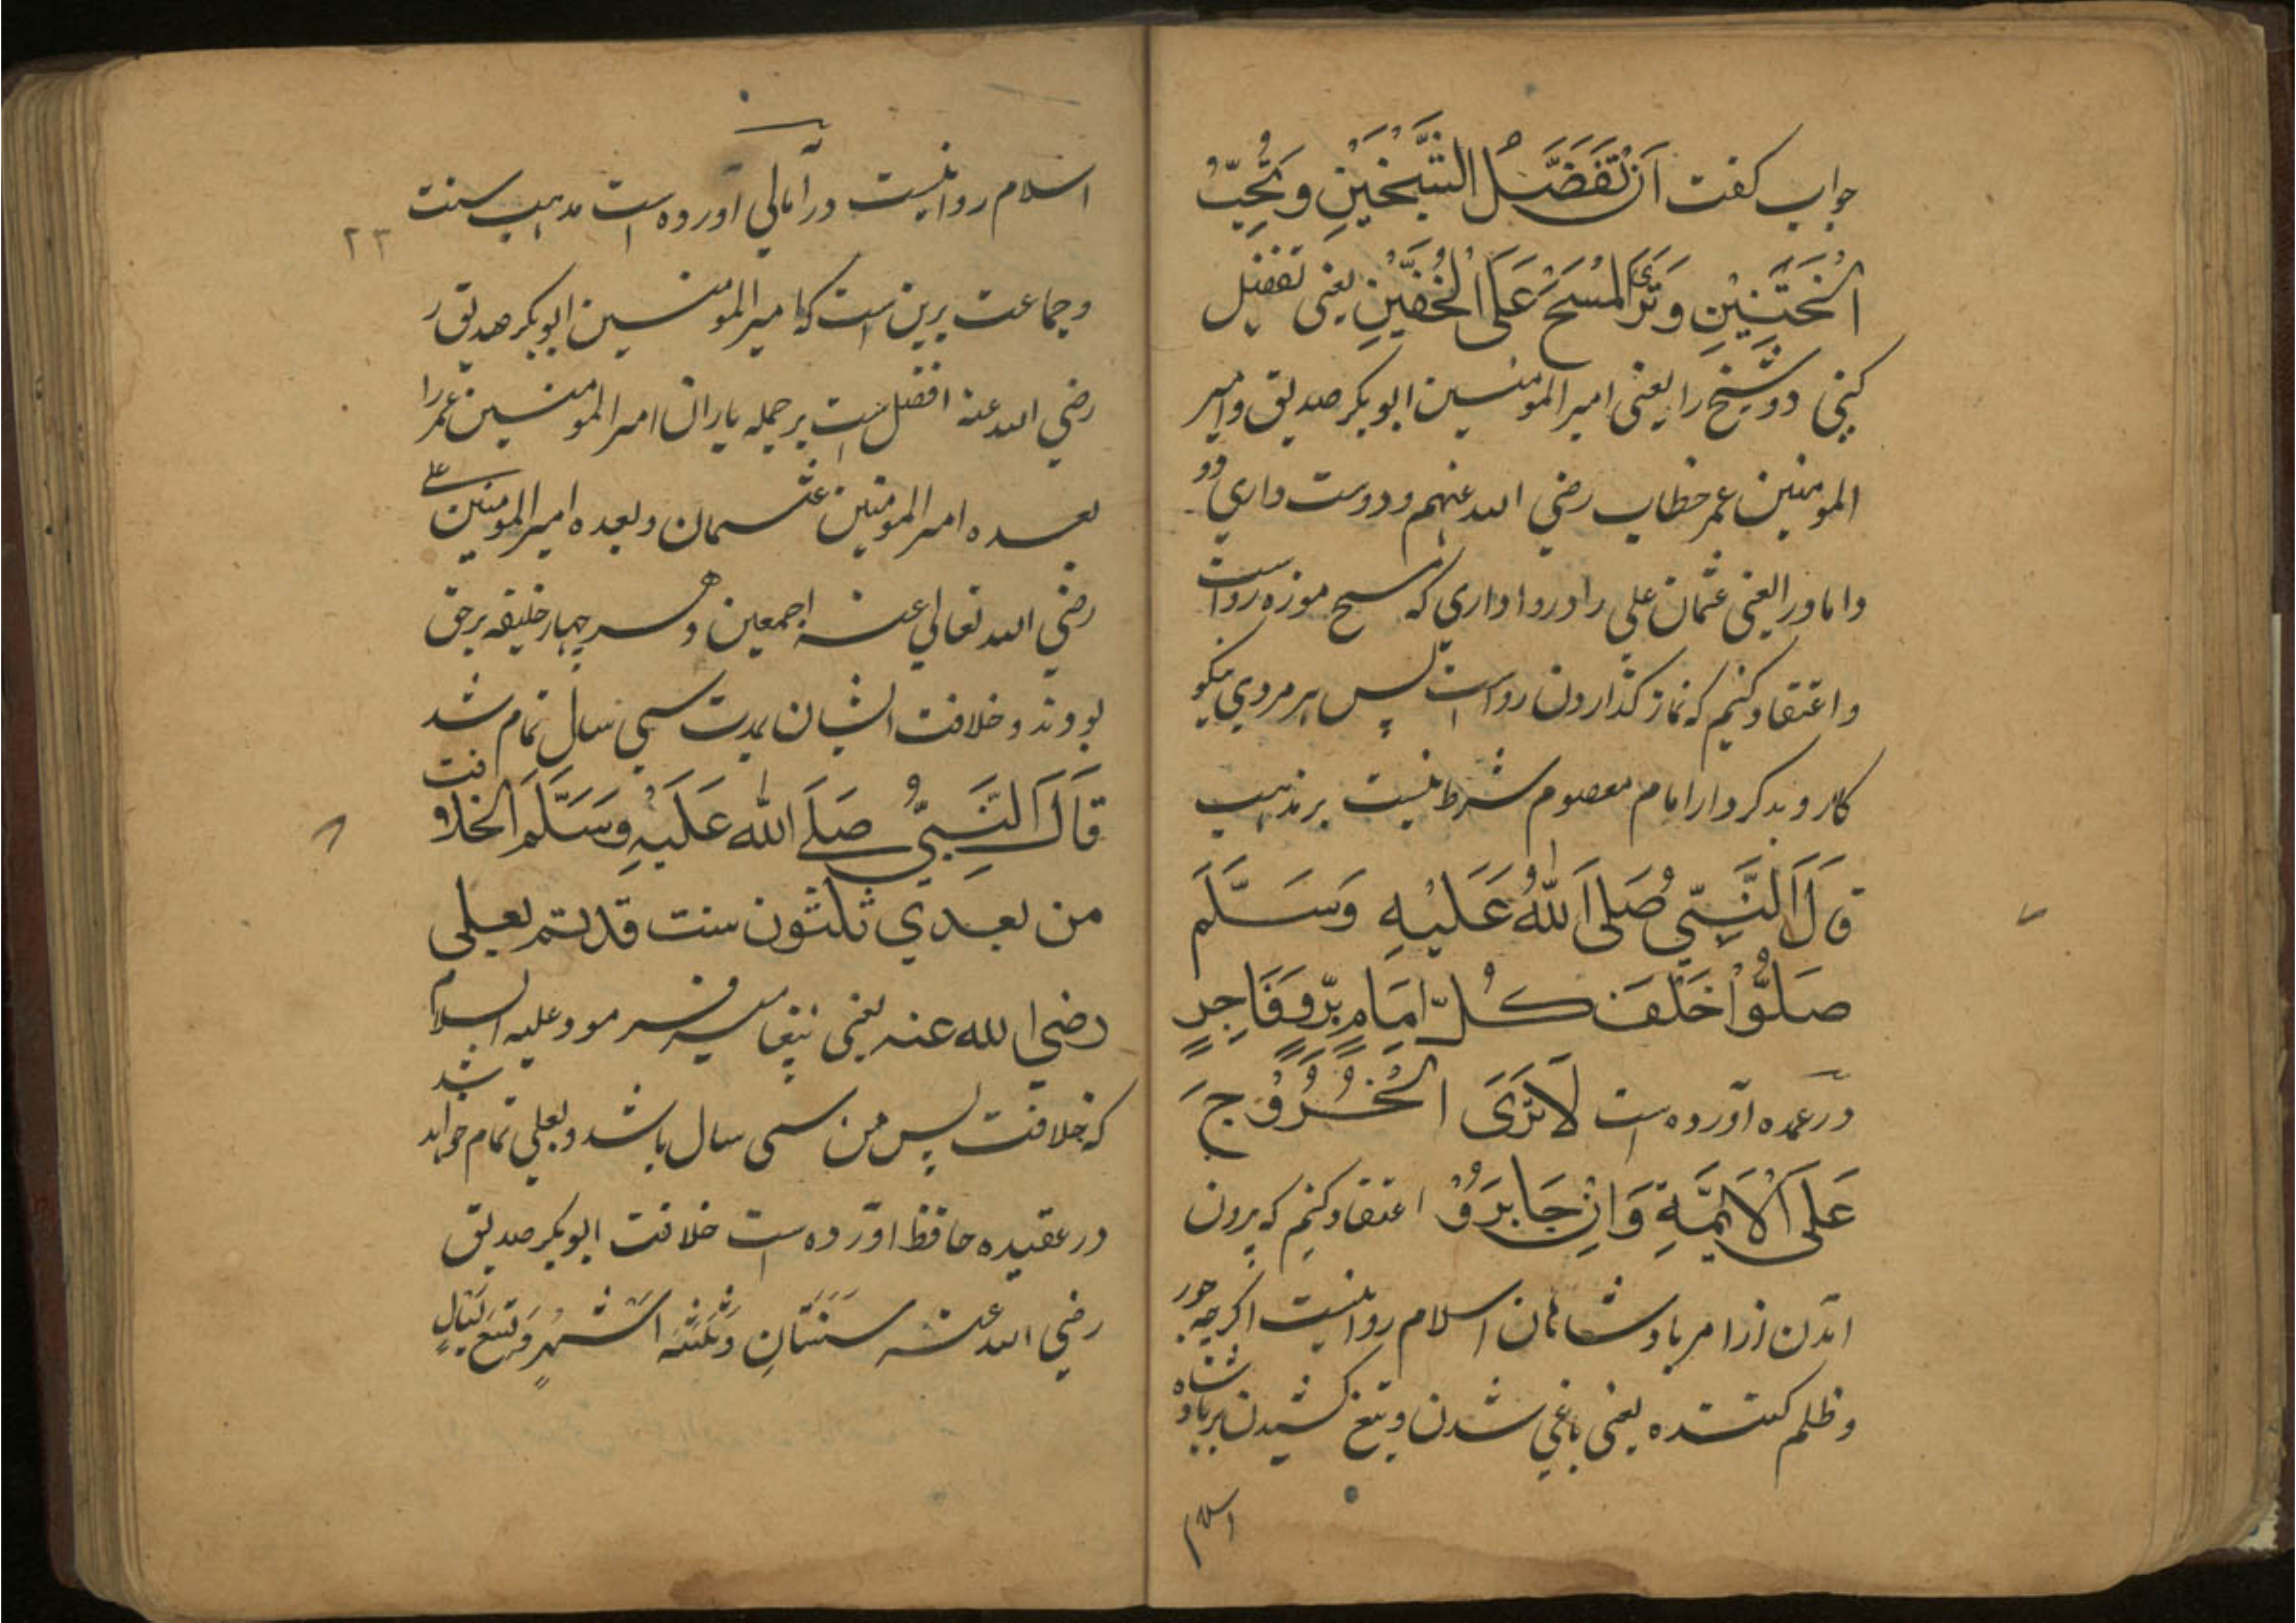 جواب کفت اَنْ تُفَضَّلُ الشَّیْخَیْنِ وَتُحِبُّ
الْخَتَنَیْنِ وَتَرَیَ الْمَسْحَ عَلَی الْخُفَّیْنِ یعنی تفضیل
کنی دو شیخ را یعنی امیرالمومنین ابوبکر صدیق وامیر
المومنین عمر خطاب رضي الله عنهم ودوست داري دو
داماد را یعنی عثمان علی را و روا داري که مسح موزه رواست
واعتقاد کنیم که نماز کذارون رواست پس هر مردي نیکو
کار و بدکردار امام معصوم شرط نیست بر مذهب
قَالَ النَّبِيّ صَلَی اللهُ عَلَیْهِ وَسَلَّمَ
صَلُّوْا خَلْفَ کُلِّ اِمَامٍ بِرٍّ وَفَاجِرٍ
در عمده آورده است لَا نَرَیَ الْخُرُوْجَ
عَلَی الْاَئِمَّةِ وَاِنْ جَابَرَوْ اعتقاد کنیم که بیرون
آمدن از امر بادشاهان اسلام روا نیست اکرچه جور
وظلم کننده یعنی باغي شدن و تیغ کشیدن بر بادشاه
اسلام
اسلام روا نیست در آمالي آورده است مذهب سنت
۲۳
وجماعت برین است که امیرالمومنین ابوبکر صدیق ر
رضي الله عنه افضل است بر جمله یاران امیرالمومنین عمر را
بعده امیرالمومنین عثمان وبعده امیرالمومنین علی
رضي الله تعالي عنه اجمعین و هر چهار خلیفه برحق
بودند و خلافت ایشان بمدت سي سال تمام شد
قَالَ النَّبِيُّ صَلَے الله عَلَیْهِ وَسَلَّمَ الخلافت
من بعدي ثلثون سنت قدیتم بعلی
رضي الله عنه یعنی پیغامبر فرمود علیه السلام
که خلافت پس من سي سال باشد و بعلي تمام خواهد شد
در عقیده حافظ آورده است خلافت ابوبکر صدیق
رضي الله عنه سَنَتَانِ وَثَلٰثَةُ اَشْهُرٍ وَتِسْعَ لَیَالٍ